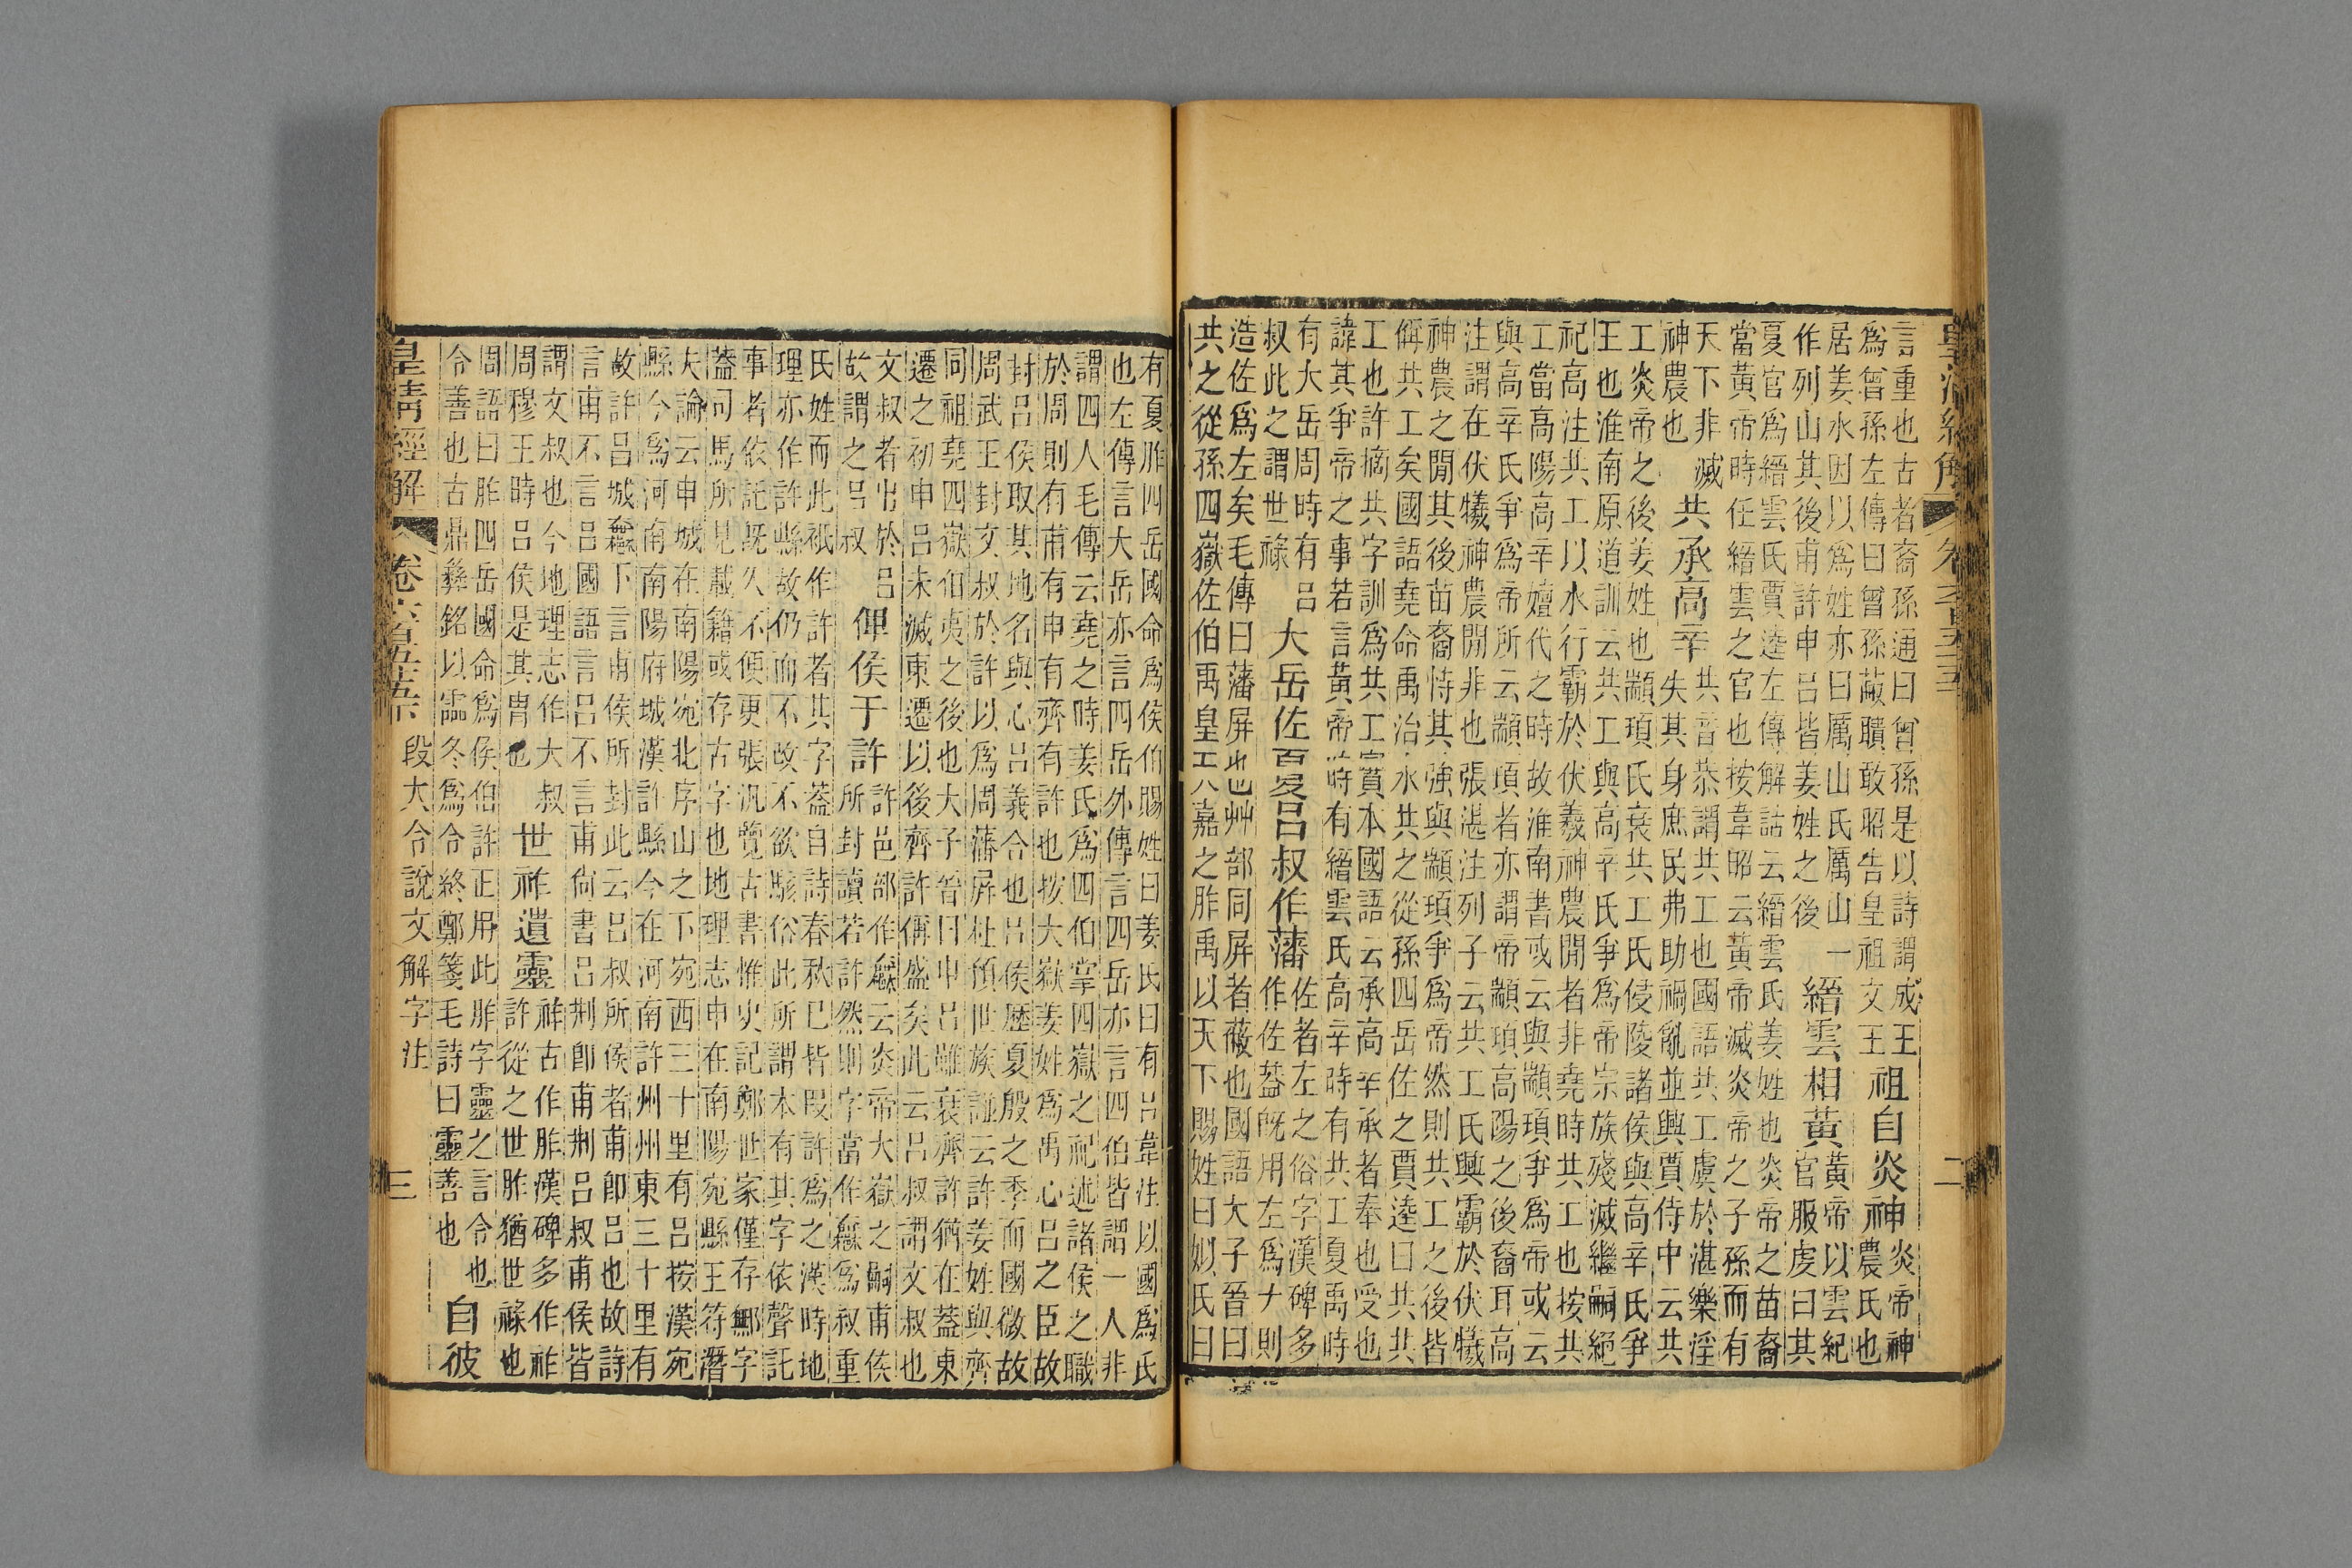 皇清經解 卷六百五十五 二
言重也古者裔孫通曰曾孫是以詩謂成王
為曾孫左傳曰曾孫蒯聵敢昭告皇祖文王
祖自炎神
炎帝神
農氏也
居姜水因以為姓亦曰厲山氏厲山一
作列山其後甫許申呂皆姜姓之後
縉雲相黃
黃帝以雲紀
官服虔曰其
夏官為縉雲氏賈逵左傳解詁云縉雲氏姜姓也炎帝之苗裔
當黃帝時任縉雲之官也按韋昭云黃帝滅炎帝之子孫而有
天下非滅
神農也
共承高辛
共音恭謂共工也國語共工虞於湛樂淫
失其身庶民弗助禍亂並興賈侍中云共
工炎帝之後姜姓也顓頊氏衰共工氏侵陵諸侯與高辛氏爭
王也淮南原道訓云共工與高辛氏爭為帝宗族殘滅繼嗣絕
祀高注共工以水行霸於伏羲神農閒者非堯時共工也按共
工當高陽高辛嬗代之時故淮南書或云與顓頊爭為帝或云
與高辛氏爭為帝所云顓頊者亦謂帝顓頊高陽之後裔耳高
注謂在伏犧神農閒非也張湛注列子云共工氏興霸於伏犧
神農之閒其後苗裔恃其強與顓頊爭為帝然則共工之後皆
偁共工矣國語堯命禹治水共之從孫四岳佐之賈逵曰共共
工也許摘共字訓為共工賈本國語云承高辛承者奉也受也
諱其爭帝之事若言黃帝時有縉雲氏高辛時有共工夏禹時
有大岳周時有呂
叔此之謂世祿
大岳佐夏呂叔作藩
佐者左之俗字漢碑多
作佐葢既用左為ナ則
造佐為左矣毛傳曰藩屏也艸部同屏者蔽也國語大子晉曰
共之從孫四嶽佐伯禹皇天嘉之胙禹以天下賜姓曰姒氏曰
有夏胙四岳國命為侯伯賜姓曰姜氏曰有呂韋注以國為氏
也左傳言大岳亦言四岳外傳言四岳亦言四伯皆謂一人非
謂四人毛傳云堯之時姜氏為四伯掌四嶽之祀述諸侯之職
於周則有甫有申有齊有許也按大嶽姜姓為禹心呂之臣故
封呂侯取其地名與心呂義合也呂侯歷夏殷之季而國微故
周武王封文叔於許以為周藩屏杜預世族譜云許姜姓與齊
同祖堯四嶽伯夷之後也大子晉曰申呂雖衰齊許猶在葢東
遷之初申呂未滅東遷以後齊許偁盛矣此云呂叔謂文叔也
文叔者出於呂
故謂之呂叔
俾侯于許
許邑部作鄦云炎帝大嶽之嗣甫侯
所封讀若許然則字當作鄦為叔重
氏姓而此祇作許者其字葢自詩春秋已皆叚許為之漢時地
理亦作許縣故仍而不改不欲駭俗此所謂本有其字依聲託
事者依託既久不便更張汎覽古書惟史記鄭世家僅存鄦字
葢司馬所見載籍或存古字也地理志申在南陽宛縣王符潛
夫論云申城在南陽宛北序山之下宛西三十里有呂按漢宛
縣今為河南南陽府城漢許縣今在河南許州州東三十里有
故許呂城鄦下言甫侯所封此云呂叔所侯者甫卽呂也故詩
言甫不言呂國語言呂不言甫尚書呂荆卽甫荆呂叔甫侯皆
謂文叔也今地理志作大叔
周穆王時呂侯是其冑也
世祚遺靈
祚古作胙漢碑多作祚
許從之世胙猶世祿也
周語曰胙四岳國命為侯伯許正用此胙字靈之言令也
令善也古鼎彝銘以霝冬為令終鄭箋毛詩曰靈善也
自彼
皇清經解 卷六百五十五 段大令說文解字注 三